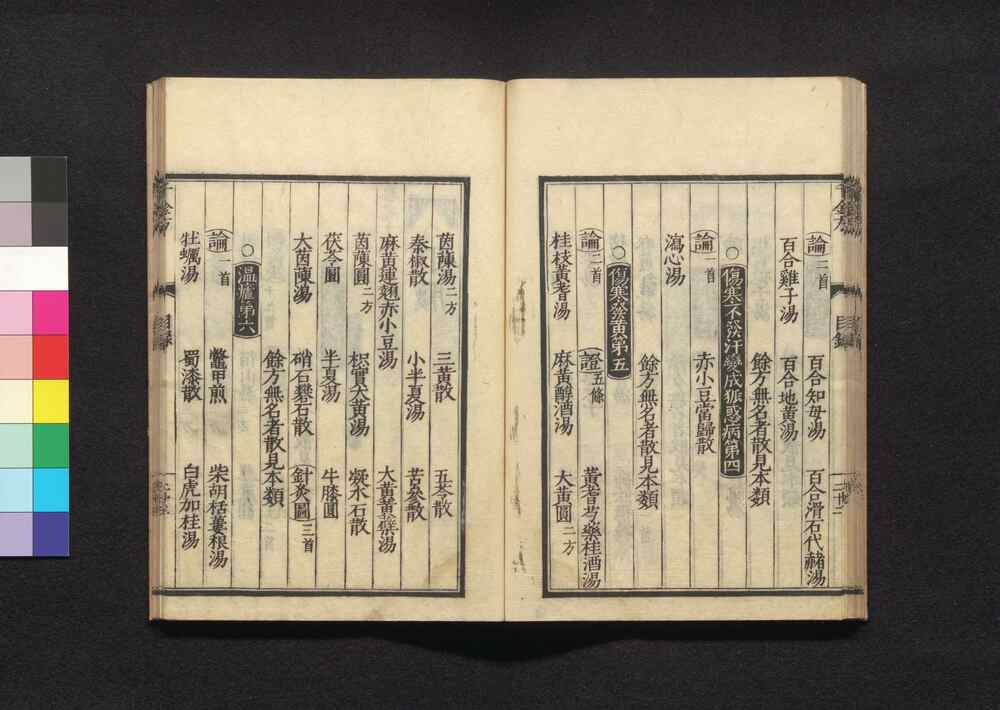 論三首 百合知毋湯 百合滑石代赭湯
百合雞子湯 百合地黄湯
餘方無名者散見本類
○傷寒不發汗變成狐惑病第四
論一首 赤小豆當歸散
瀉心湯
餘方無名者散見本類
○傷寒發黄第五
論二首 證五條 黄耆芍藥桂酒湯
桂枝黄耆湯 麻黄醇酒湯 大黄圓二方
茵蔯湯二方 三黄散 五苓散
秦椒散 小半夏湯 苦參散
麻黄連翹赤小豆湯 大黄黄蘗湯
茵蔯圓二方 枳實大黄湯 凝水石散
茯苓圓 半夏湯 牛膝圓
大茵蔯湯 硝石礬石散 針灸圖三首
餘方無名者散見本類
○温瘧第六
論一首 鼈甲煎 柴胡栝蔞根湯
牡蠣湯 蜀漆散 白虎加桂湯
千金方
目録
目録